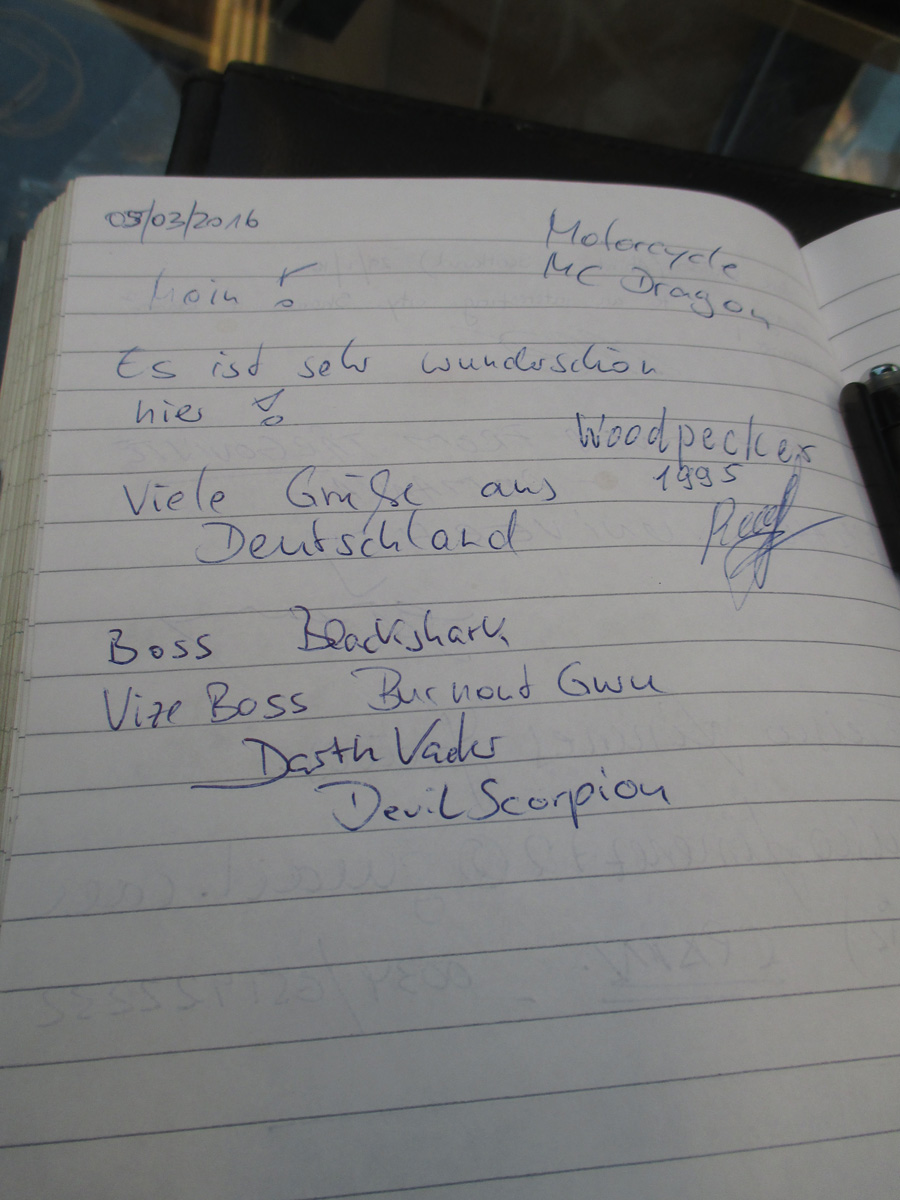 05/03/2016
Motorcycle
MC Dragon
Moin !
Es ist sehr wunderschön
hier !
Woodpecker
1995
Viele Grüße aus
Deutschland
Boss Blackshark
Vize Boss Burnout Gwu
Darth Vader
Devil Scorpion